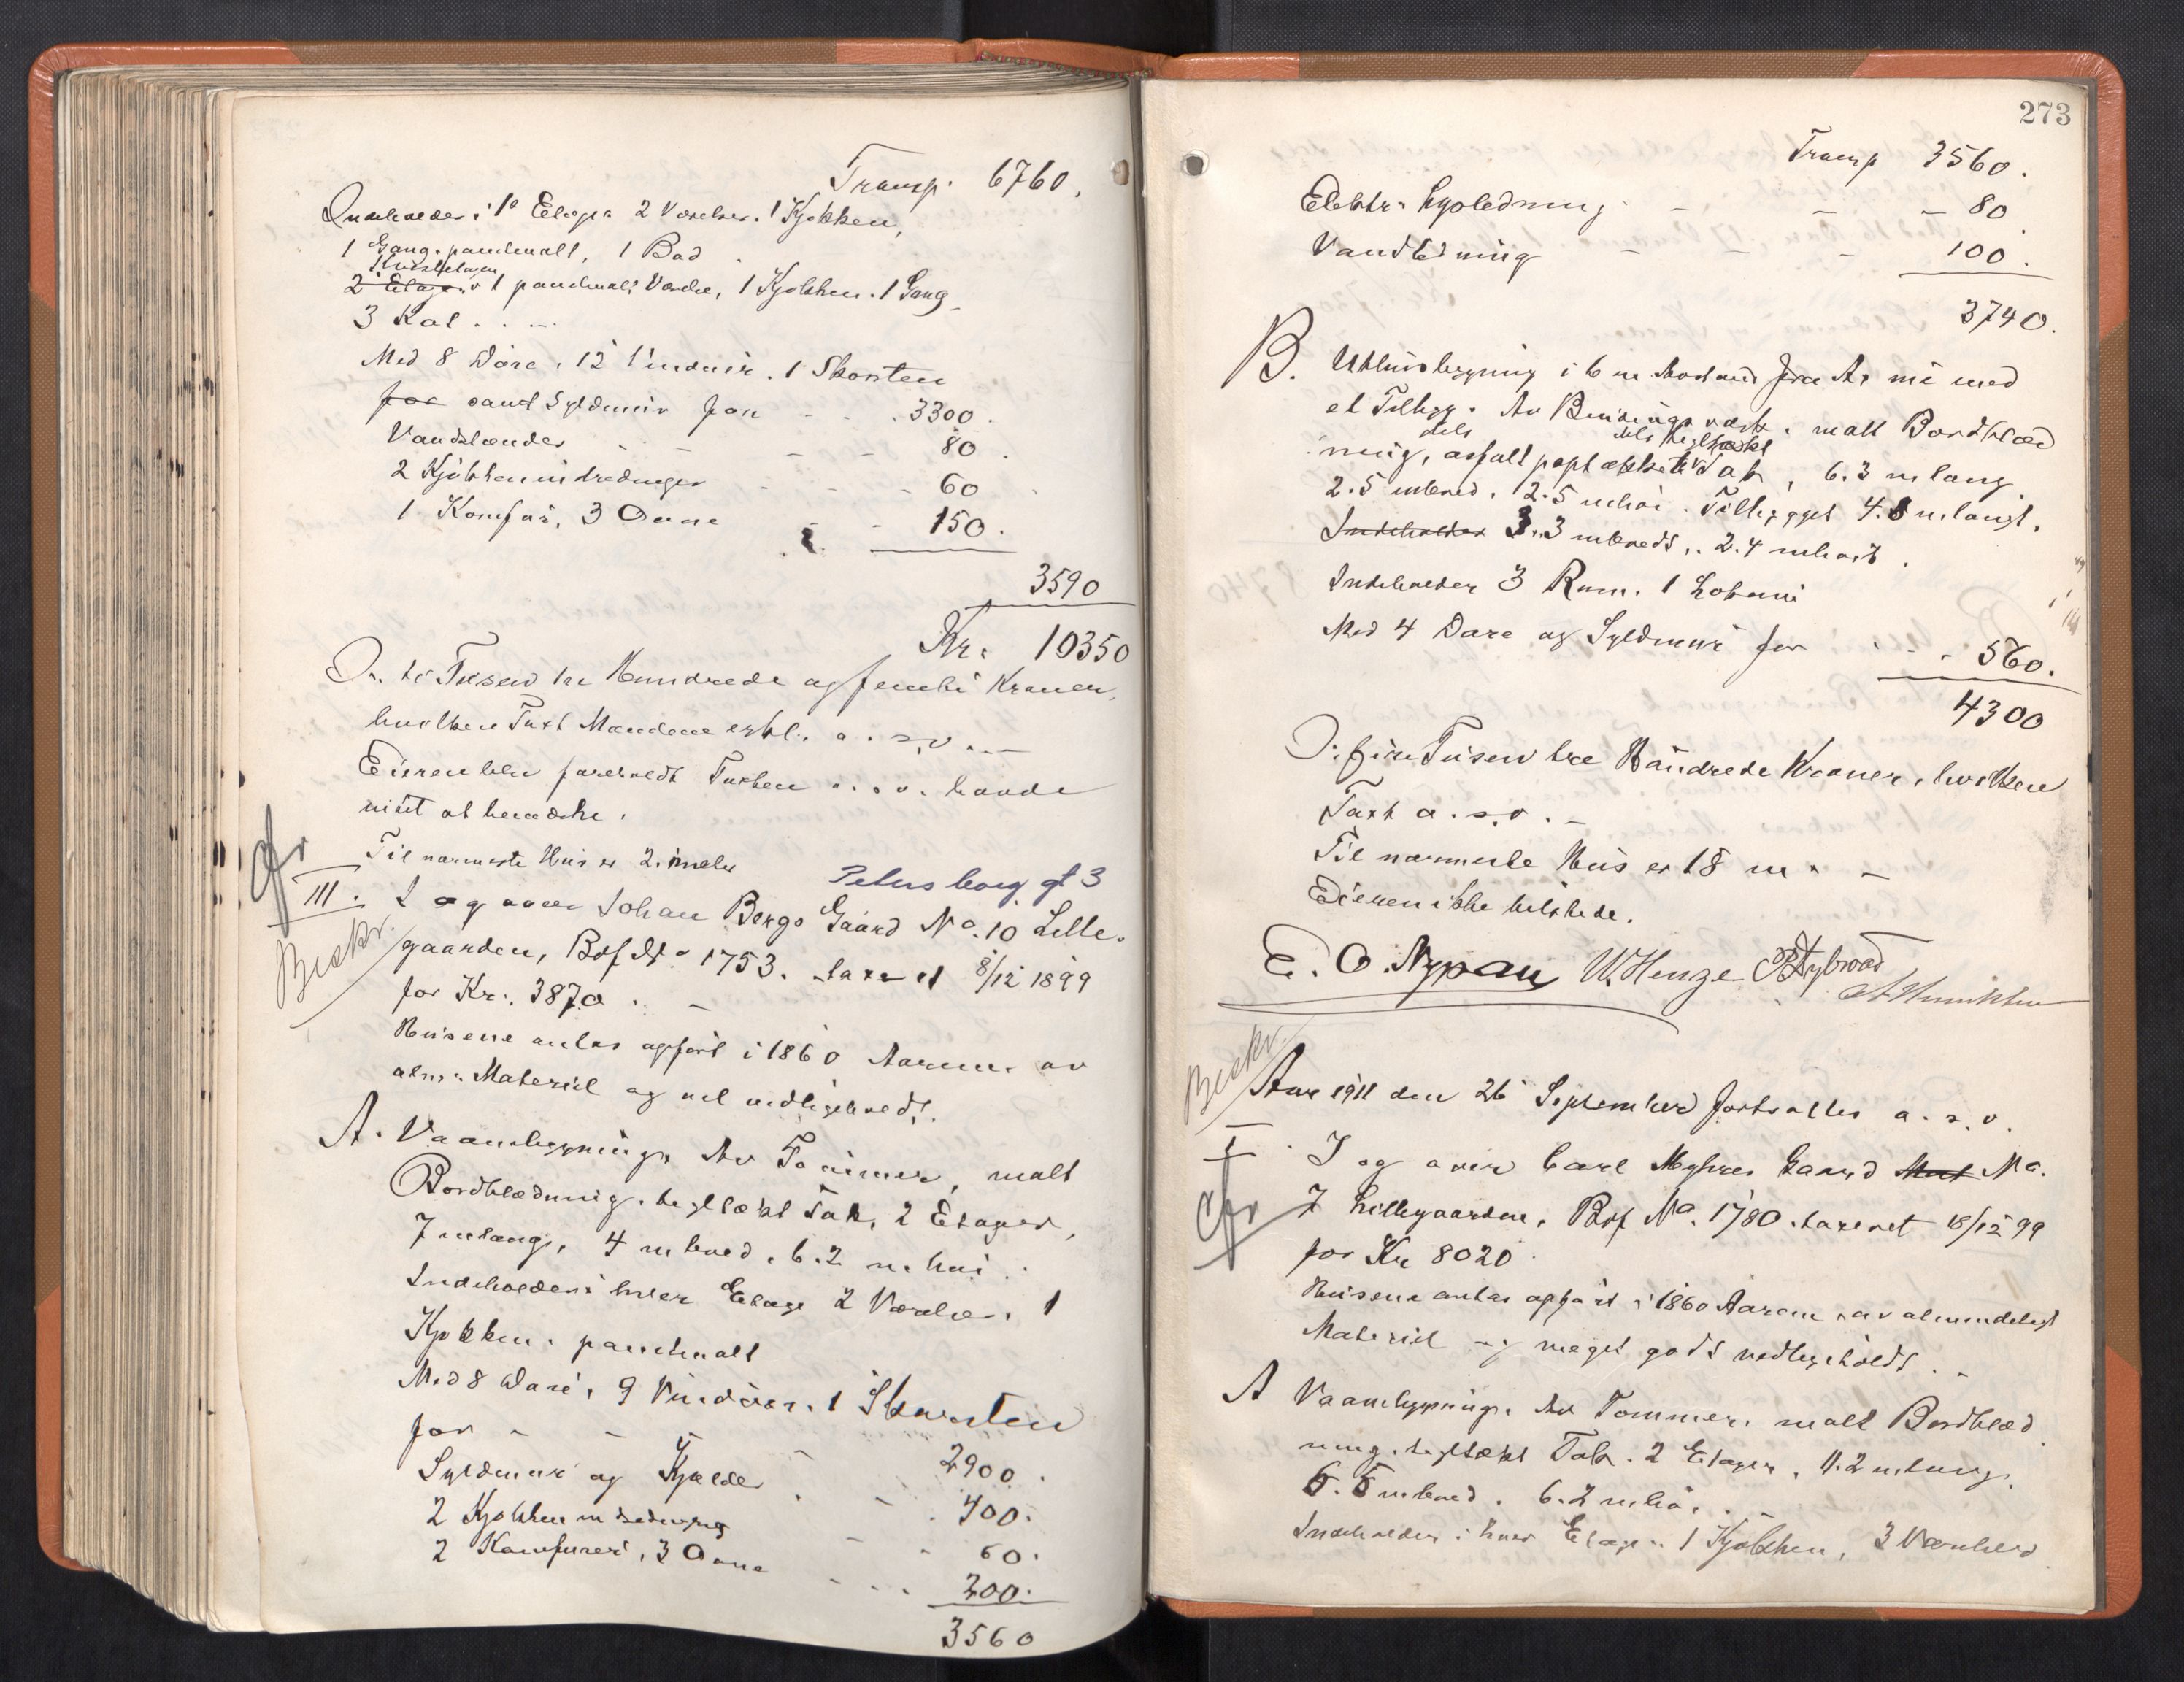 Transp. 6760.
Indeholder i 1ª Etage 2 Værelser. 1 Kjøkken,
1 Gang. panelmalt, 1 Bad
Kvistetagen
2 Etage 1 panelmalt Værelse, 1 Kjøkken. 1 Gang
3 Kot
Med 8 Døre, 12 Vinduer. 1 Skorsten
for samt Syldmur for - - 3300.
Vandklosonder - - 80.
2 Kjøkkenindredninger - - 60
1 Komfur, 3 Ovne - - 150.
3590
Kr. 10350
O. ti Tusen tre Hundrede og femti Kroner,
hvilken Taxt Mændene erkl. a. s. v.
Eieren blev foreholdt Taxten a. s. v. havde
intet at bemærke.
Til nærmeste Hus er 2. meter
Petersborg gt 3
III. I og over Johan Bergs Gaard No. 10 Lille-
Beskr.
gaarden, Bdf No 1753. taxeret 8/12 1899
for Kr. 3870. -
Husene antas opført i 1860 Aarene av
alm. Materiel og vel vedligeholdt.
A. Vaanbygning. Av Tømmer, malt
Bordklædning. tegltækt Tak, 2 Etager,
7 m lang, 4 m bred. 6.2 m høi.
Indeholder i hver Etage 2 Værelser. 1
Kjøkken. panelmalt
Med 8 Døre, 9 Vinduer. 1 Skorsten
for - - - 2900.
Syldmur og Kjelder - 400.
2 Kjøkkenindredning - - 60.
2 Komfurer, 3 Ovne - - - 200.
3560
273
Transp 3560.
Elektr. Lysledning - - - 80
Vandledning - - - 100.
3740.
B. Uthusbygning i 6 m Avstand fra A. nu med
et Tilbygg. Av Bindingsverk. malt Bordklæd
dels dels tegltækt
ning, asfaltpaptækket Tak, 6.3 m lang
2.5 m bred. 2.5 m høi. Tilbygget 4.8 m langt.
Indeholder 3.3 m bredt, 2.4 m høit.
Indeholder 3 Rum. 1 Lokum
Med 4 Døre og Syldmur for - - - 560.
4300
O. fire Tusen tre Hundrede Kroner, hvilken
Taxt a. s. v. -
Til nærmeste Hus er 18 m. -
Eieren ikke tilstede.
E. O. Nypan W. Henze
Beskr.
Aar 1911 den 26 September fortsattes a. s. v.
I. I og over Carl Myhres Gaard Mat No.
7 Lillegaarden, Bdf No. 1780. taxeret 18/12 99
for Kr 8020
Husene antas opført i 1860 Aarene av almindeligt
Materiel og meget godt vedligeholdt. -
A Vaanbygning. Av Tømmer. malt Bordklæd
ning. tegltækt Tak. 2 Etager, 11.2 m lang,
6.5 m bred. 6.2 m høi. -
Indeholder i hver Etage. 1 Kjøkken, 3 Værelser